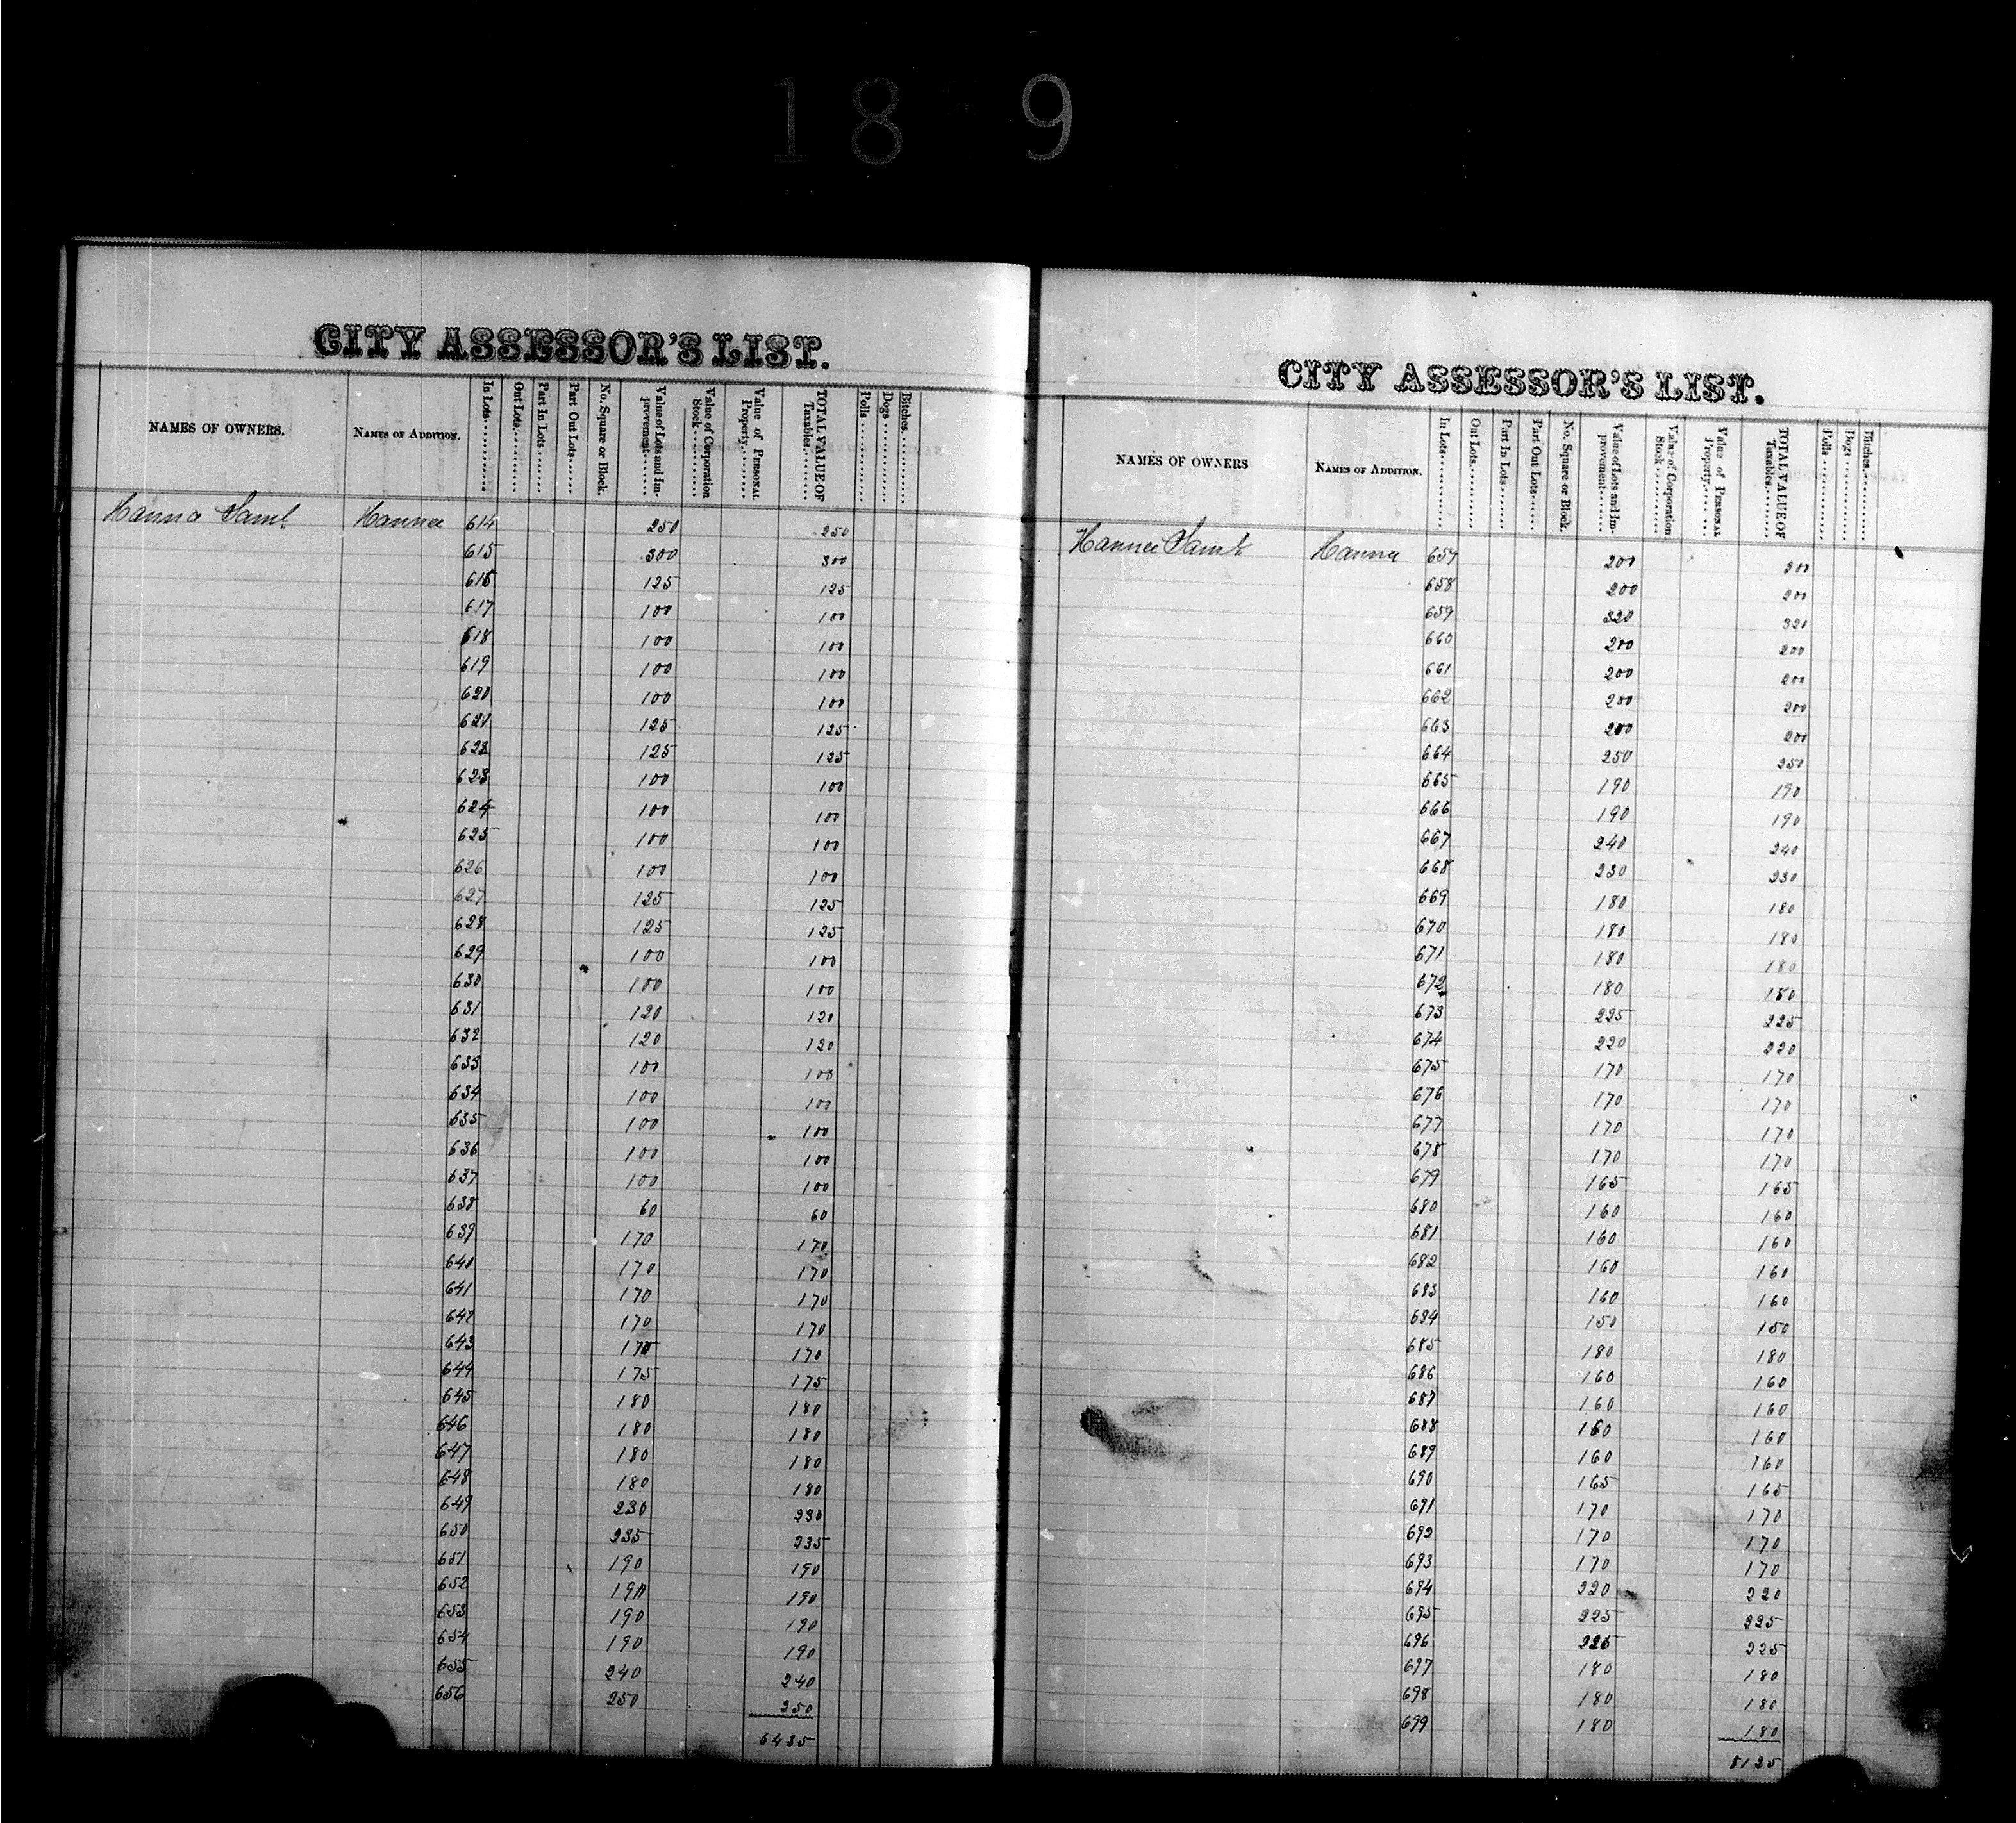 18 9
CITY ASSESSOR'S LIST.
NAMES OF OWNERS. NAMES OF ADDITION. In Lots Out Lots Part In Lots Part Out Lots No. Square or Block. Value of Lots and Improvement Value of Corporation Stock Value of PERSONAL Property TOTAL VALUE OF Taxables Polls Dogs Bitches
Hanna Saml. Hanna 614 250 250
615 300 300
616 125 125
617 100 100
618 100 100
619 100 100
620 100 100
621 125 125
622 125 125
623 100 100
624 100 100
625 100 100
626 100 100
627 125 125
628 125 125
629 100 100
630 100 100
631 120 120
632 120 120
633 100 100
634 100 100
635 100 100
636 100 100
637 100 100
638 60 60
639 170 170
640 170 170
641 170 170
642 170 170
643 170 170
644 175 175
645 180 180
646 180 180
647 180 180
648 180 180
649 230 230
650 235 235
651 190 190
652 190 190
653 190 190
654 190 190
655 240 240
656 250 250
6485
CITY ASSESSOR'S LIST.
NAMES OF OWNERS NAMES OF ADDITION. In Lots Out Lots Part In Lots Part Out Lots No. Square or Block. Value of Lots and Improvement Value of Corporation Stock Value of PERSONAL Property TOTAL VALUE OF Taxables Polls Dogs Bitches
Hanna Saml. Hanna 657 200 200
658 200 200
659 320 320
660 200 200
661 200 200
662 200 200
663 200 200
664 250 250
665 190 190
666 190 190
667 240 240
668 230 230
669 180 180
670 180 180
671 180 180
672 180 180
673 225 225
674 220 220
675 170 170
676 170 170
677 170 170
678 170 170
679 165 165
680 160 160
681 160 160
682 160 160
683 160 160
684 150 150
685 180 180
686 160 160
687 160 160
688 160 160
689 160 160
690 165 165
691 170 170
692 170 170
693 170 170
694 220 220
695 225 225
696 225 225
697 180 180
698 180 180
699 180 180
8125